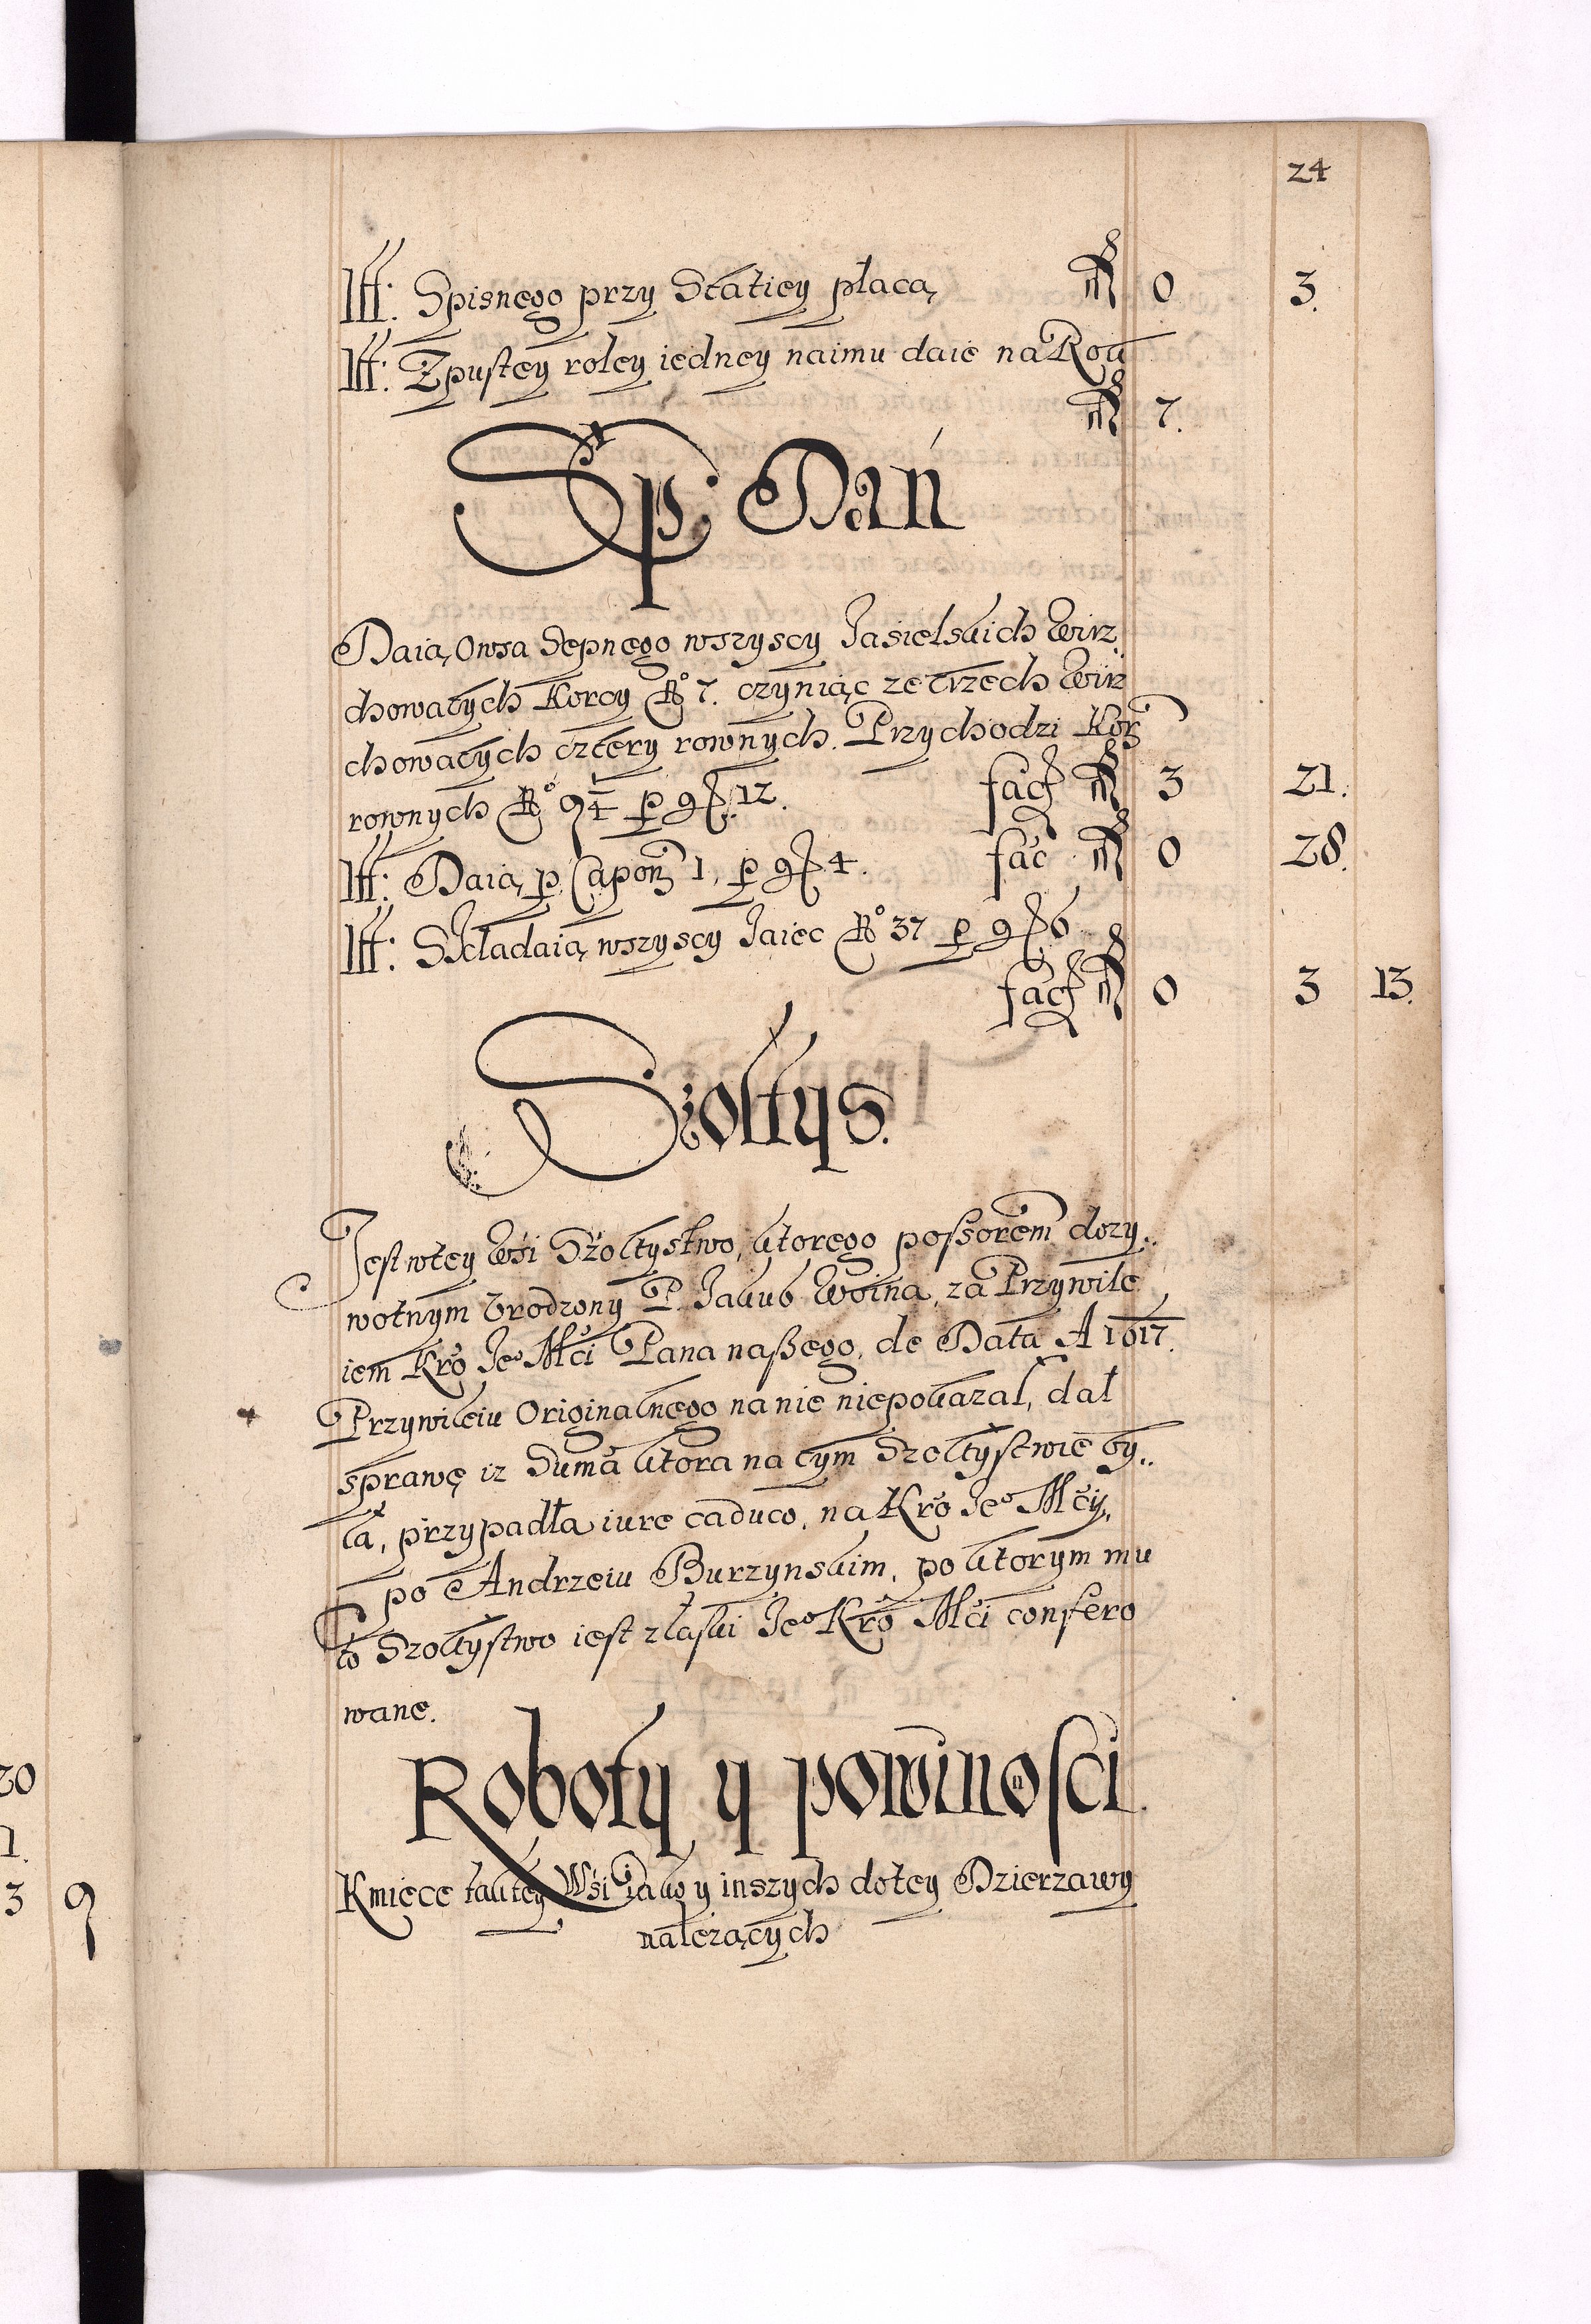 24
Itt: Spisnego przy Staciey płacą f 0 3.
Itt: Zpustey roley iedney naimu daie na Rok
f 7.
Sęp: Dań
Daią Owsa Sepnego wszyscy Jasielskich Wirz
chowatych Korcy No 7. czyniąc ze trzech Wirz
chowatych cztery rownych. Przychodzi Kor
rownych No 9¼ p gr 12. facit f 3 21.
Itt: Daią p Capon 1, p gr 4. fac f 0 28.
Itt: Składaią wszyscy Jaiec No 37 p gr 6
facit f 0 3 13.
Szołtys.
Jest wtey Wsi Szołtystwo, ktorego possorem dozy..
wotnym Urodzony P. Jakub Woina, za Przywile
iem Kro Jeo Mści Pana naszego, de Data A 1617.
Przywileiu Originalnego na nie niepokazal, dał
sprawę iz Suma ktora na tym Szołtystwie by..
ła, przypadła iure caduco, na Kro Jeo Mści,
po Andrzeiu Burzynskim, po ktorym mu
to Szołtystwo iest złaski Jeo Kro Mści confero
wane.
Roboty y powinności.
Kmiece taktey Wsi iako y inszych dotey Dzierzawy
należących
20
1.
3 9